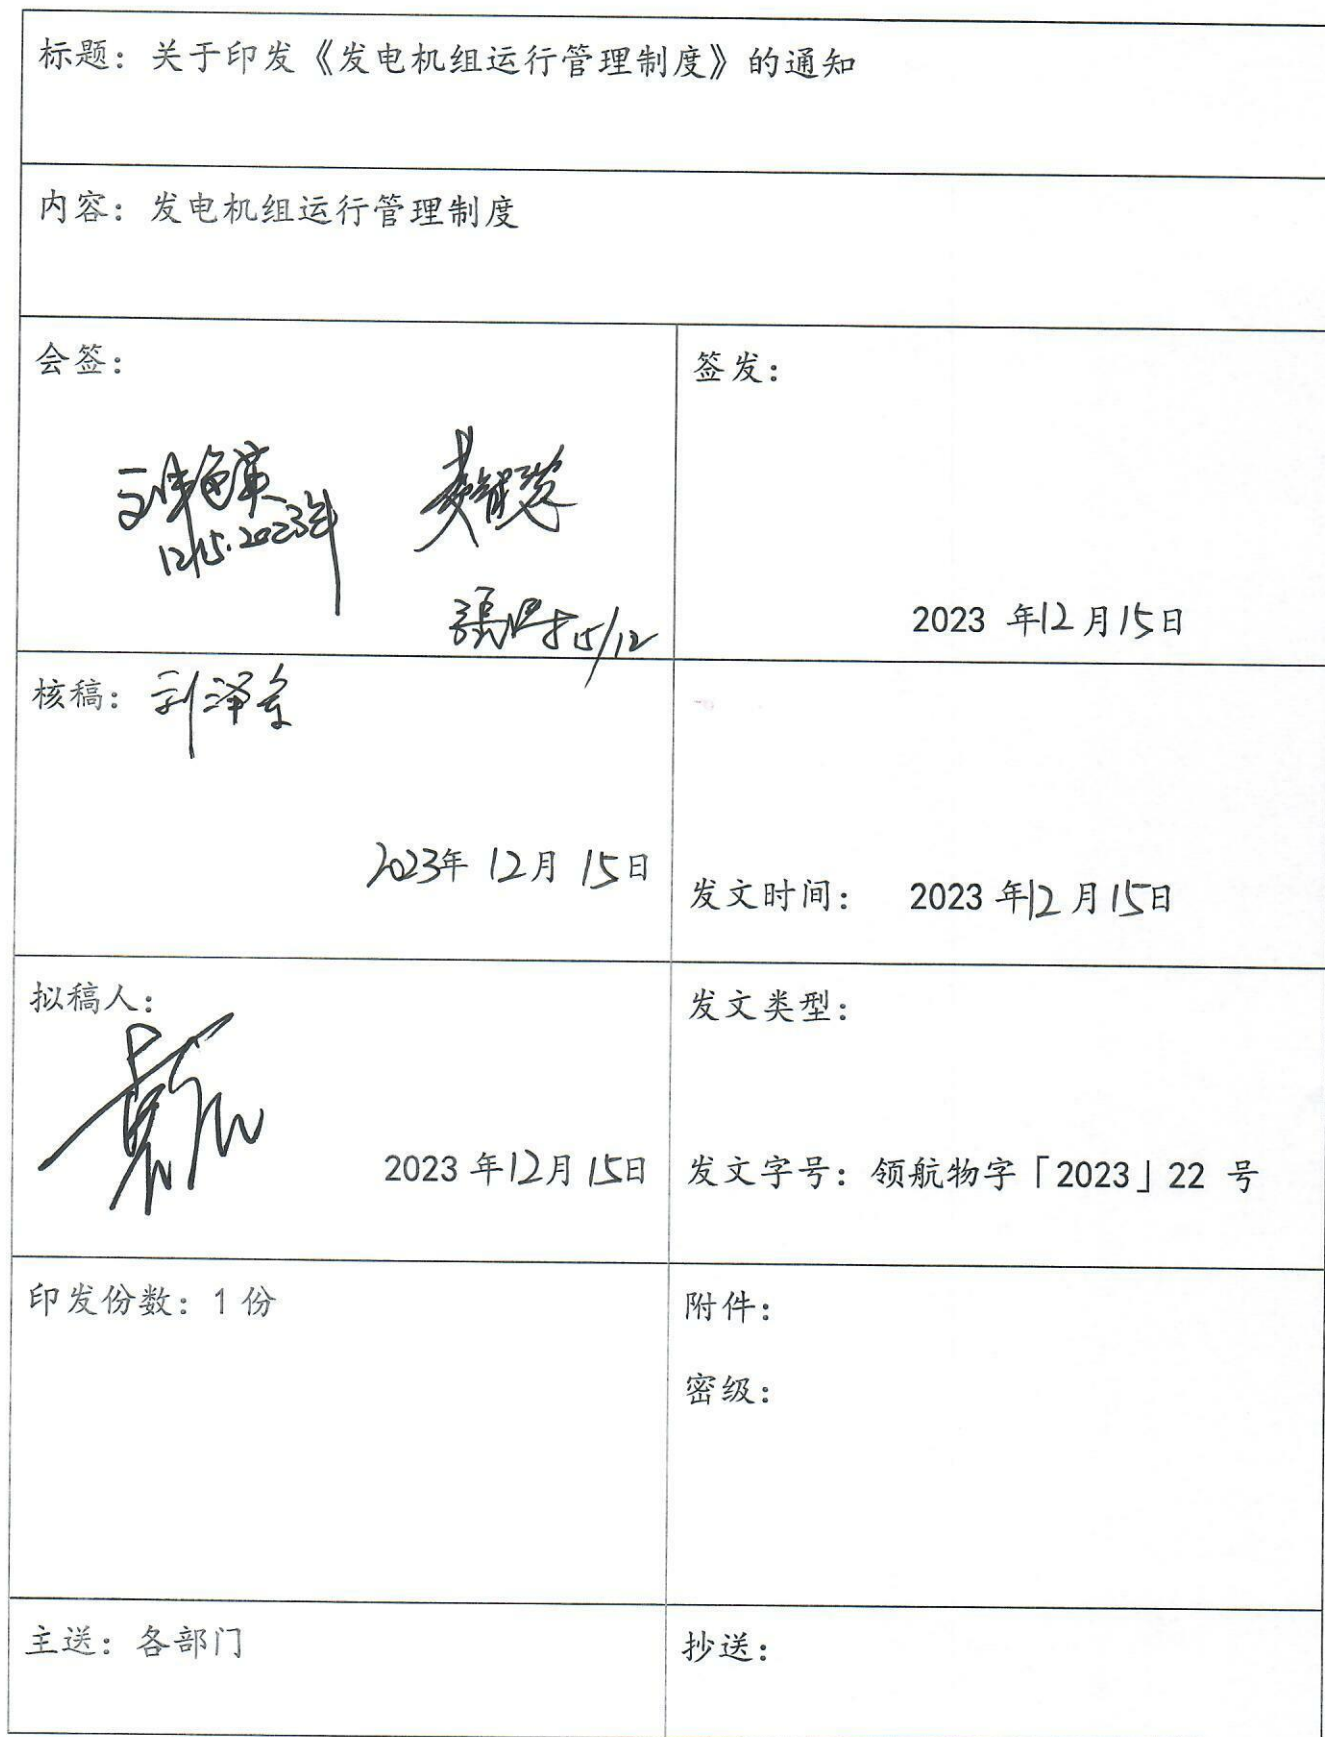 标题：关于印发《发电机组运行管理制度》的通知
内容：发电机组运行管理制度
会签：
12/15.2023年
15/12
签发：
2023 年12月15日
核稿：刘泽
2023年 12月 15日
发文时间： 2023 年12月15日
拟稿人：
2023 年12月15日
发文类型：
发文字号：领航物字「2023」22 号
印发份数：1 份
附件：
密级：
主送：各部门
抄送：